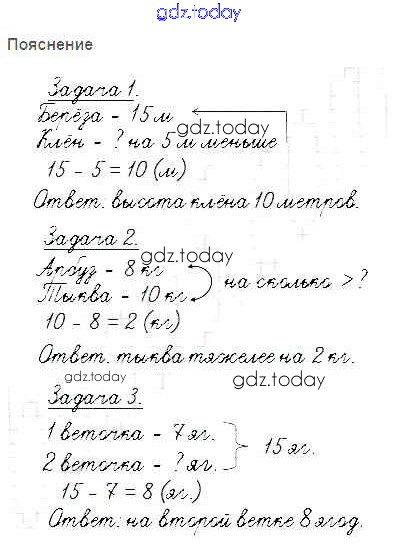 gdz.today
Пояснение
Задача 1.
Берёза - 15 м
gdz.today
Клён - ? на 5 м меньше
15 - 5 = 10 (м)
Ответ. высота клёна 10 метров.
Задача 2.
gdz.today
Арбуз - 8 кг
на сколько > ?
Тыква - 10 кг
10 - 8 = 2 (кг)
Ответ. тыква тяжелее на 2 кг.
gdz.today
gdz.today
Задача 3.
1 веточка - 7 яг.
15 яг.
2 веточка - ? яг.
15 - 7 = 8 (яг.)
Ответ: на второй ветке 8 ягод.